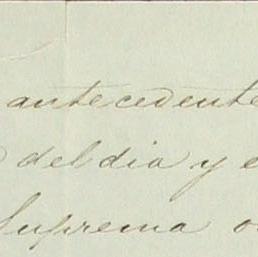 antecedente
del dia y e
Suprema o